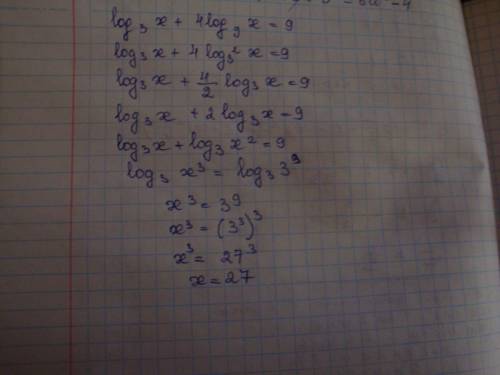 log₃ x + 4log₉ x = 9
log₃ x + 4 log₃² x = 9
log₃ x + 4/2 log₃ x = 9
log₃ x + 2 log₃ x = 9
log₃ x + log₃ x² = 9
log₃ x³ = log₃ 3⁹
x³ = 3⁹
x³ = (3³)³
x³ = 27³
x = 27